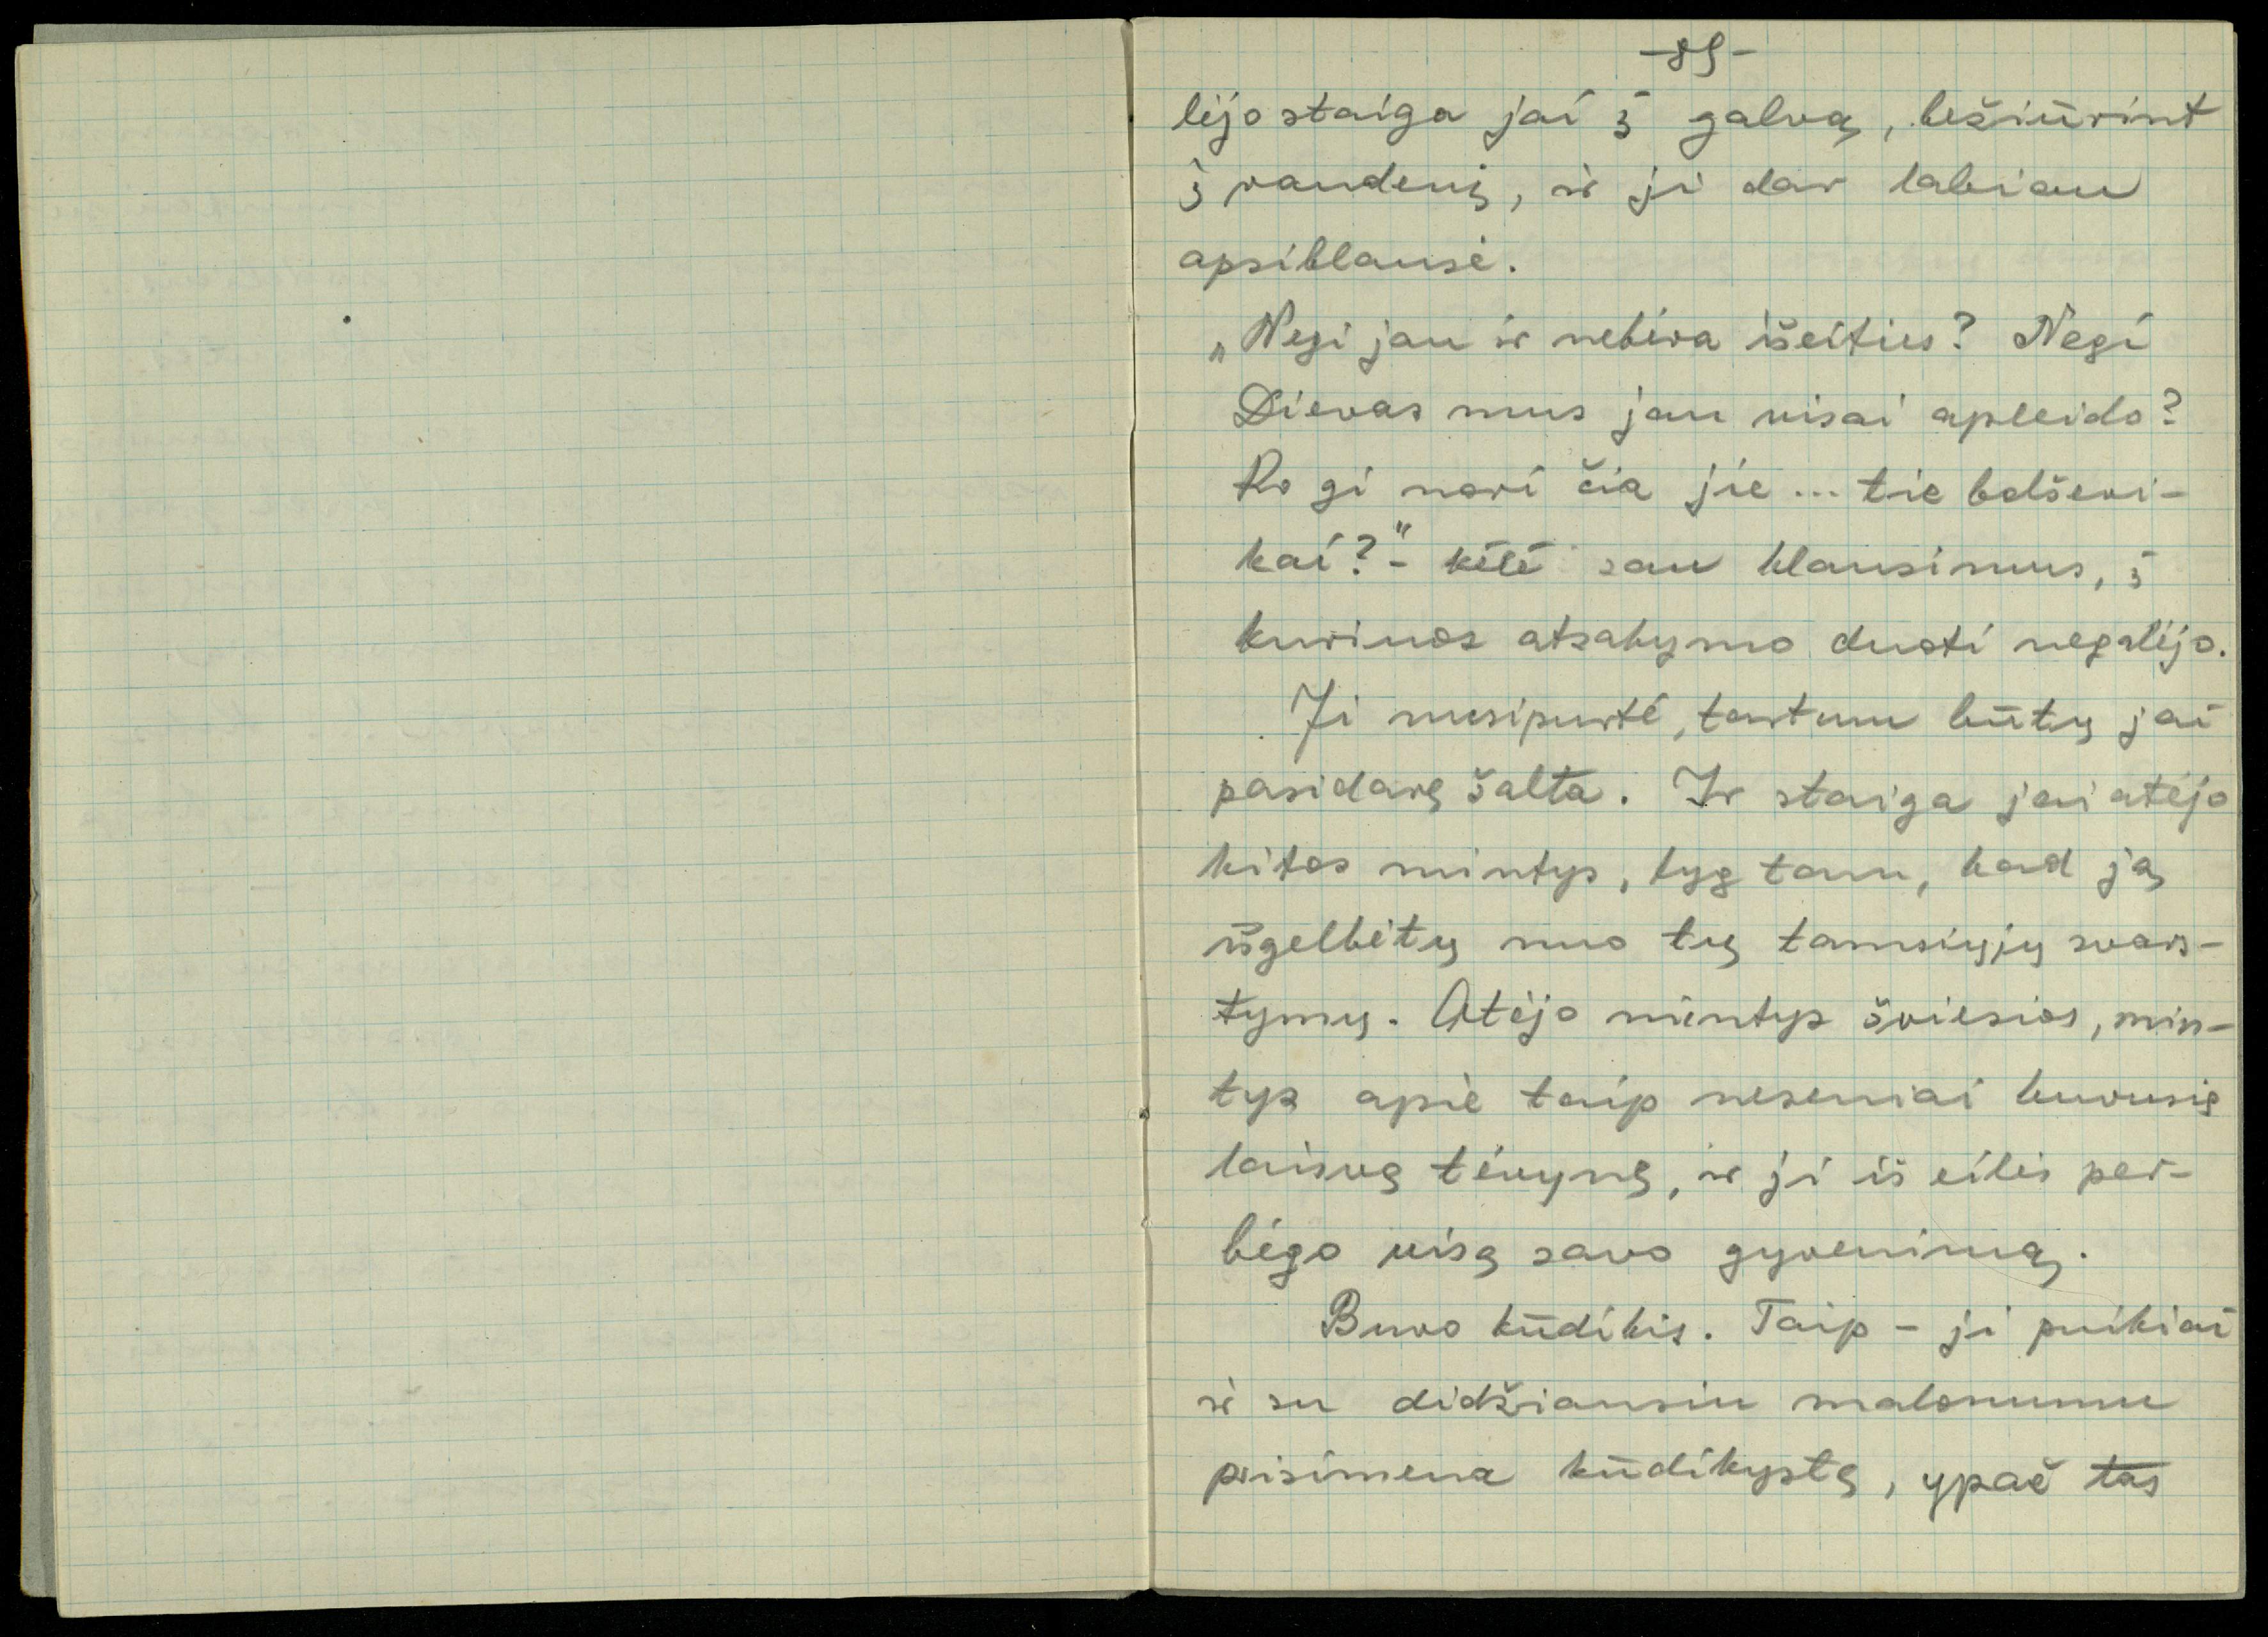 -89-
lėjo staiga jai į galvą, bežiūrint
į vandenį, ir ji dar labiau
apsiblausė.
„Negi jau ir nebėra išeities? Negi
Dievas mus jau visai apleido?
Ko gi nori čia jie... tie bolševi-
kai?"- kėlė sau klausimus, į
kuriuos atsakymo duoti negalėjo.
Ji nusipurtė, tartum būtų jai
pasidarę šalta. Ir staiga jai atėjo
kitos mintys, lyg tam, kad ją
išgelbėtų nuo tų tamsiųjų svars-
tymų. Atėjo mintys šviesios, min-
tys apie taip neseniai buvusią
laisvą tėvynę, ir ji iš eilės per-
bėgo visą savo gyvenimą.
Buvo kūdikis. Taip - ji puikiai
ir su didžiausiu malonumu
prisimena kūdikystę, ypač tas